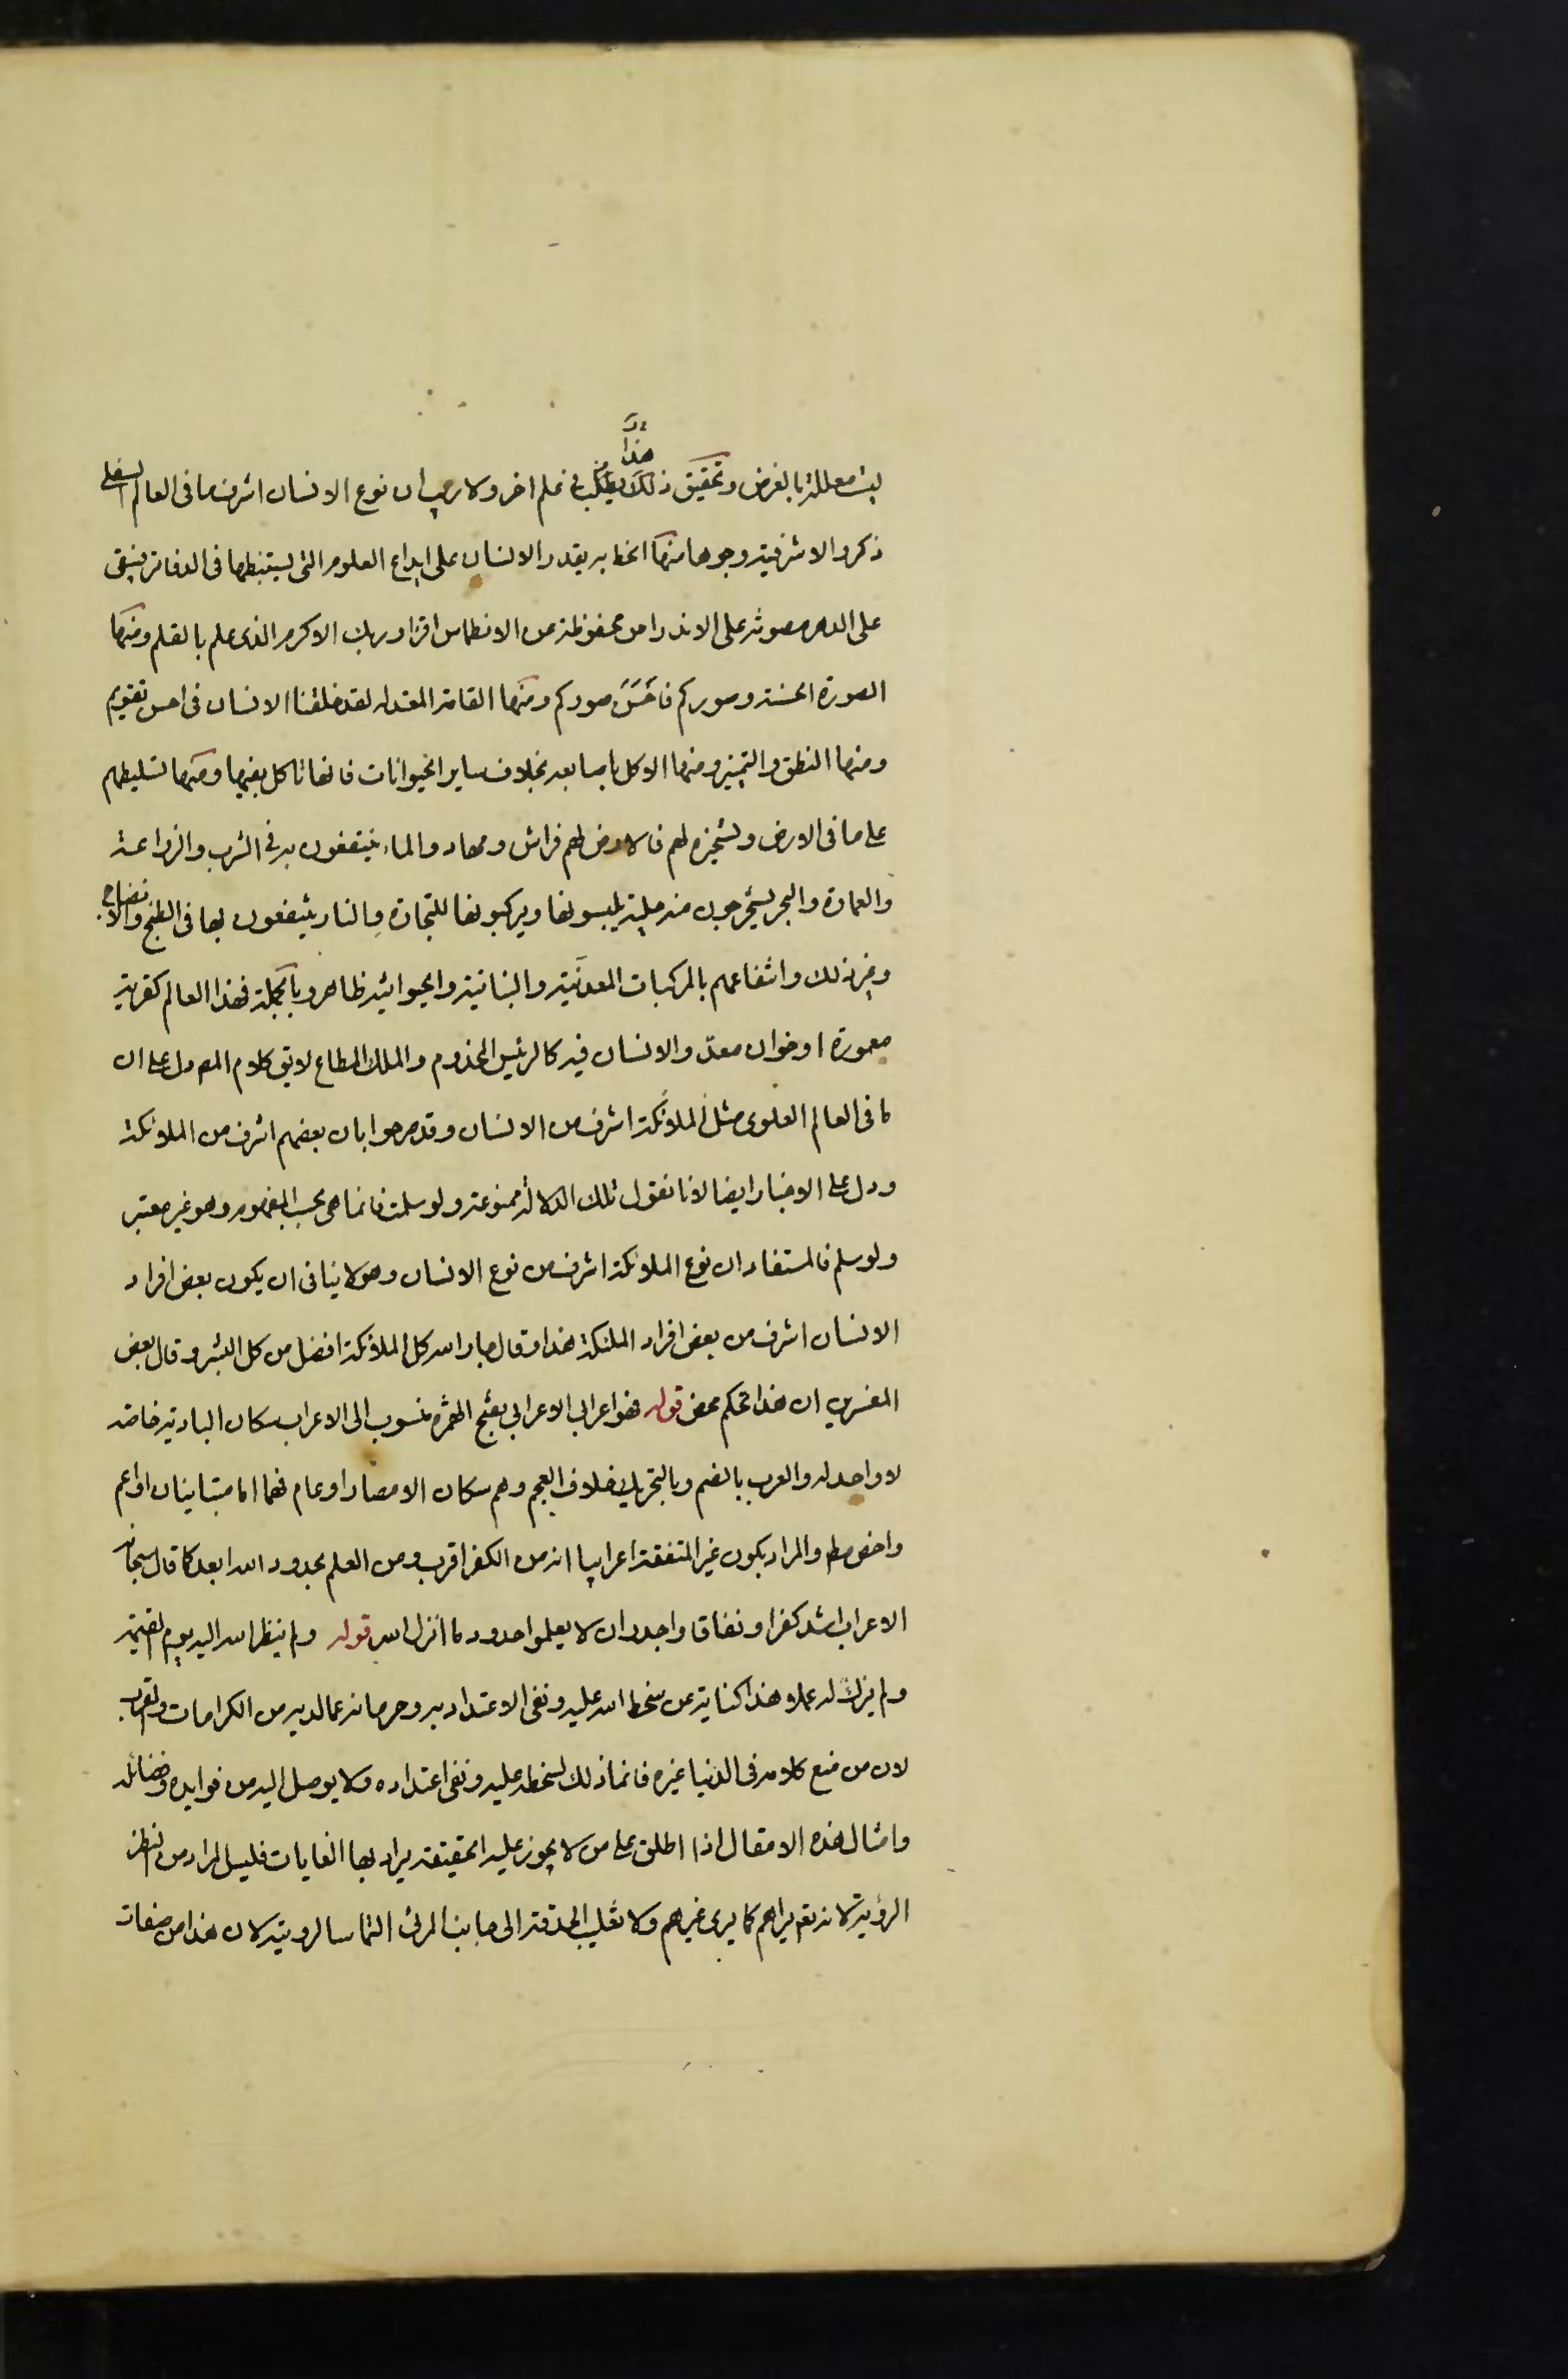 ليست معللة بالغرض وتحقيق ذلك يطلب في علم اخر هذا ولا ريب ان نوع الانسان اشرف ما فى العالم السفلى
ذكروا لاشرفيته وجوها منها الخط به يقدر الانسان على ابداع العلوم التى يستنبطها فى الدفاتر فيبقى
على الدهر مصونة على الاندراس محفوظة عن الانطماس اقرا وربك الاكرم الذى علم بالقلم ومنها
الصورة الحسنة وصوركم فاحسن صوركم ومنها القامة المعتدلة لقد خلقنا الانسان فى احسن تقويم
ومنها النطق والتميز ومنها الاكل باصابعه بخلاف ساير الحيوانات فانها تاكل بفيها ومنها تسليطهم
على ما فى الارض وتسخيره لهم فالارض لهم فراش ومهاد والماء ينتفعون به فى الشرب والزراعة
والعمارة والبحر يستخرجون منه حلية يلبسونها ويركبونها للتجارة والنار ينتفعون بها فى الطبخ والانضاج
وغير ذلك وانتفاعهم بالمركبات المعدنية والنباتية والحيوانية ظاهر وبالجملة فهذا العالم كقرية
معمورة او خوان معد والانسان فيه كالرئيس المخدوم والملك المطاع لا يق كلام المص دل على ان
ما فى العالم العلوى مثل الملائكة اشرف من الانسان وقد صرحوا بان بعضهم اشرف من الملائكة
ودل على الاخبار ايضا لانا نقول تلك الدلالة ممنوعة ولو سلمت فانما هى بحسب المفهوم وهو غير معتبر
ولو سلم فالمستفاد ان نوع الملائكة اشرف من نوع الانسان وهو لا ينافى ان يكون بعض افراد
الانسان اشرف من بعض افراد الملئكة هذا وقال جار الله كل الملائكة افضل من كل البشر وقال بعض
المفسرين ان هذا تحكم محض قوله فهو اعرابى الاعرابى بفتح الهمزة منسوب الى الاعراب سكان البادية خاصة
لا واحد له والعرب بالضم وبالتحريك خلاف العجم وهم سكان الامصار او عام فهما اما متباينان او اعم
واخص مطم والمراد بكون غير المتفقه اعرابيا انه من الكفر اقرب ومن العلم بحدود الله ابعد كما قال سبحانه
الاعراب اشد كفرا ونفاقا واجدر ان لا يعلموا حدود ما انزل الله قوله ولم ينظر الله اليه يوم القيمة
ولم يزك له عملا هذا كناية عن سخط الله عليه ونفى الاعتداد به وحرمانه عما لديه من الكرامات والقرب
لان من منع كلامه فى الدنيا غيره فانما ذلك لسخطه عليه ونفى اعتداده ولا يوصل اليه من فوايده وفضائله
وامثال هذه الافعال اذا اطلق على من لا يجوز عليه الحقيقة يراد بها الغايات فليس المراد من النظر
الرؤية لانه تع يراهم كما يرى غيرهم ولا تقليب الحدقة الى جانب المرئى التماسا لرويته لان هذا من صفات